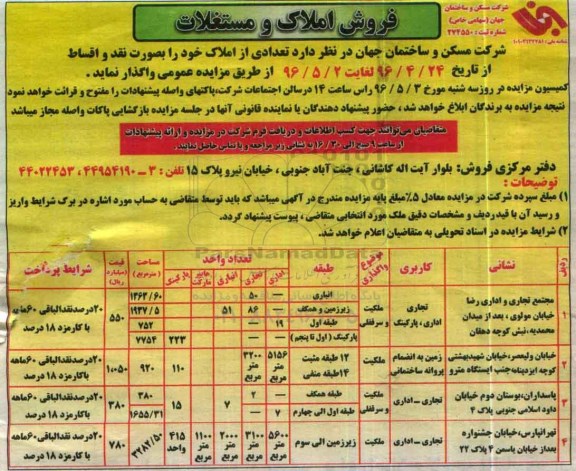 فروش املاک و مستغلات
شرکت مسکن و ساختمان
جهان (سهامی خاص)
شماره ثبت: ۲۷۴۵۵۰
شرکت مسکن و ساختمان جهان در نظر دارد تعدادی از املاک خود را بصورت نقد و اقساط
از تاریخ ۹۶/۴/۲۴ لغایت ۹۶/۵/۲ از طریق مزایده عمومی واگذار نماید.
کمیسیون مزایده در روزسه شنبه مورخ ۹۶/۵/۳ راس ساعت ۱۴ درسالن اجتماعات شرکت،پاکتهای واصله پیشنهادات را مفتوح و قرائت خواهد نمود
نتیجه مزایده به برندگان ابلاغ خواهد شد، حضور پیشنهاد دهندگان یا نماینده قانونی آنها در جلسه مزایده بازگشایی پاکات واصله مجاز میباشد
متقاضیان می‌توانند جهت کسب اطلاعات و دریافت فرم شرکت در مزایده و ارائه پیشنهادات
از ساعت ۹ صبح الی ۱۶/۳۰ به نشانی زیر مراجعه و یا تماس حاصل نمایند.
دفتر مرکزی فروش: بلوار آیت اله کاشانی، جنت آباد جنوبی، خیابان نیرو پلاک ۱۵ تلفن: ۳ - ۴۴۹۵۴۱۹۰، ۴۴۰۲۲۴۵۳
توضیحات:
۱) مبلغ سپرده شرکت در مزایده معادل ۵٪ مبلغ پایه مزایده مندرج در آگهی میباشد که باید توسط متقاضی به حساب مورد اشاره در برگ شرایط واریز
و رسید آن با قید ردیف و مشخصات دقیق ملک مورد انتخابی متقاضی، پیوست پیشنهاد گردد.
۲) شرایط مزایده در اسناد تحویلی به متقاضیان اعلام خواهد شد.
نشانی کاربری موضوع واگذاری طبقه تعداد واحد مساحت (مترمربع) قیمت (میلیارد ریال) شرایط پرداخت
اداری تجاری انباری هایپر مارکت پارکینگ
۱ مجتمع تجاری و اداری رضا خیابان مولوی، بعد از میدان محمدیه،نبش کوچه دهقان تجاری اداری، پارکینگ ملکیت و سرقفلی ۵۵۰ ۲۰درصدنقدالباقی ۶۰ماهه با کارمزد ۱۸ درصد
انباری ۵۰ ۱۳۶۳/۶۰
زیرزمین و همکف ۸۶ ۵۱ ۱۹۳۷/۵
طبقه اول ۱۹ ۷۵۲
پارکینگ (اول تا پنجم) ۲۲۳ ۷۷۵۴
۲ خیابان ولیعصر،خیابان شهیدبهشتی کوچه ایزدپناه،جنب ایستگاه مترو زمین به انضمام پروانه ساختمانی ملکیت ۱۲ طبقه مثبت ۱۴طبقه منفی ۵۱۵۶ متر مربع ۳۲۰۰ متر مربع ۱۱۰ ۹۲۰ ۱۰۵۰ ۲۰درصدنقدالباقی ۶۰ماهه با کارمزد ۱۸ درصد
۳ پاسداران،بوستان دوم خیابان داود اسلامی جنوبی پلاک ۴ تجاری ــ اداری ملکیت و سرقفلی ۱۵ ۳۸۰ ۲۰درصدنقدالباقی ۶۰ماهه با کارمزد ۱۸ درصد
طبقه همکف ۲ ۷ ۳۸۰
طبقه اول الی چهارم ۷ ۱۶۵۵/۳۱
۴ تهرانپارس، خیابان جشنواره بعداز خیابان یاسمن ۴ پلاک ۲۲ تجاری ــ اداری ملکیت زیرزمین الی سوم ۵۶۰۰ متر مربع ۳۱۰۰ متر مربع ۲۰۰۰ متر مربع ۱۱۰۰ متر مربع ۴۱۵ واحد ۳۲۸۲/۵۰ ۷۸۰ ۲۰درصدنقدالباقی ۶۰ماهه با کارمزد ۱۸ درصد